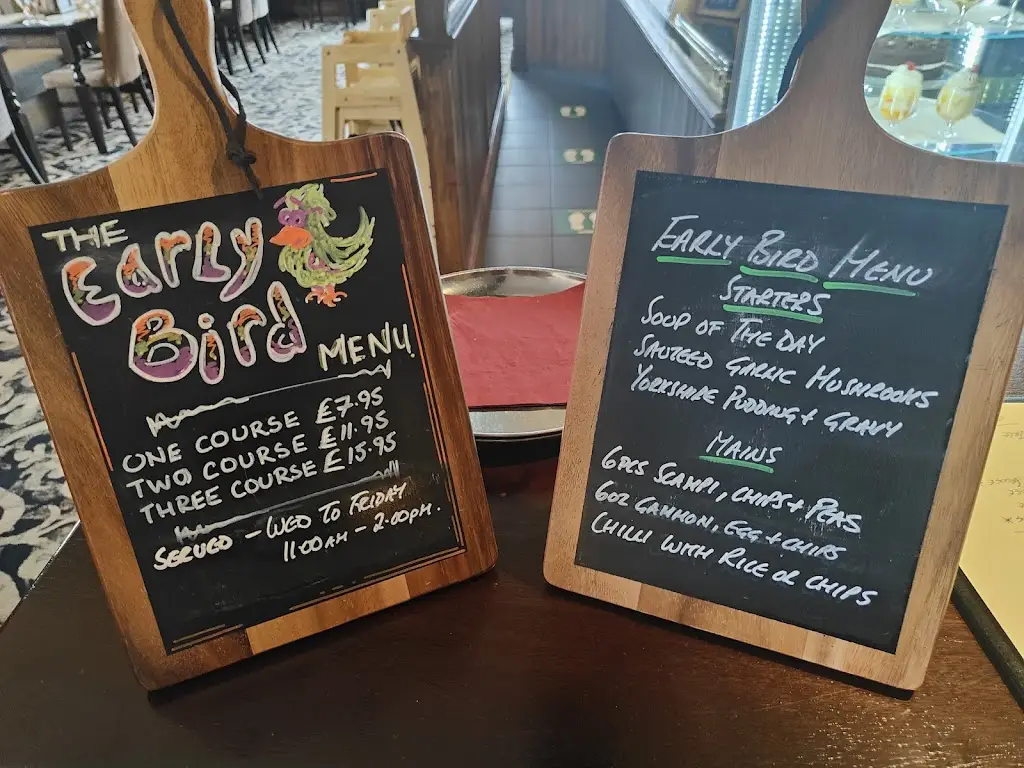 THE
Early
Bird
MENU
ONE COURSE £7.95
TWO COURSE £11.95
THREE COURSE £15.95
SERVED - WED TO FRIDAY
11:00AM - 2:00pm.
EARLY BIRD MENU
STARTERS
SOUP OF THE DAY
SAUTEED GARLIC MUSHROOMS
YORKSHIRE PUDDING + GRAVY
MAINS
6PCS SCAMPI, CHIPS + PEAS
6OZ GAMMON, EGG + CHIPS
CHILLI WITH RICE OR CHIPS